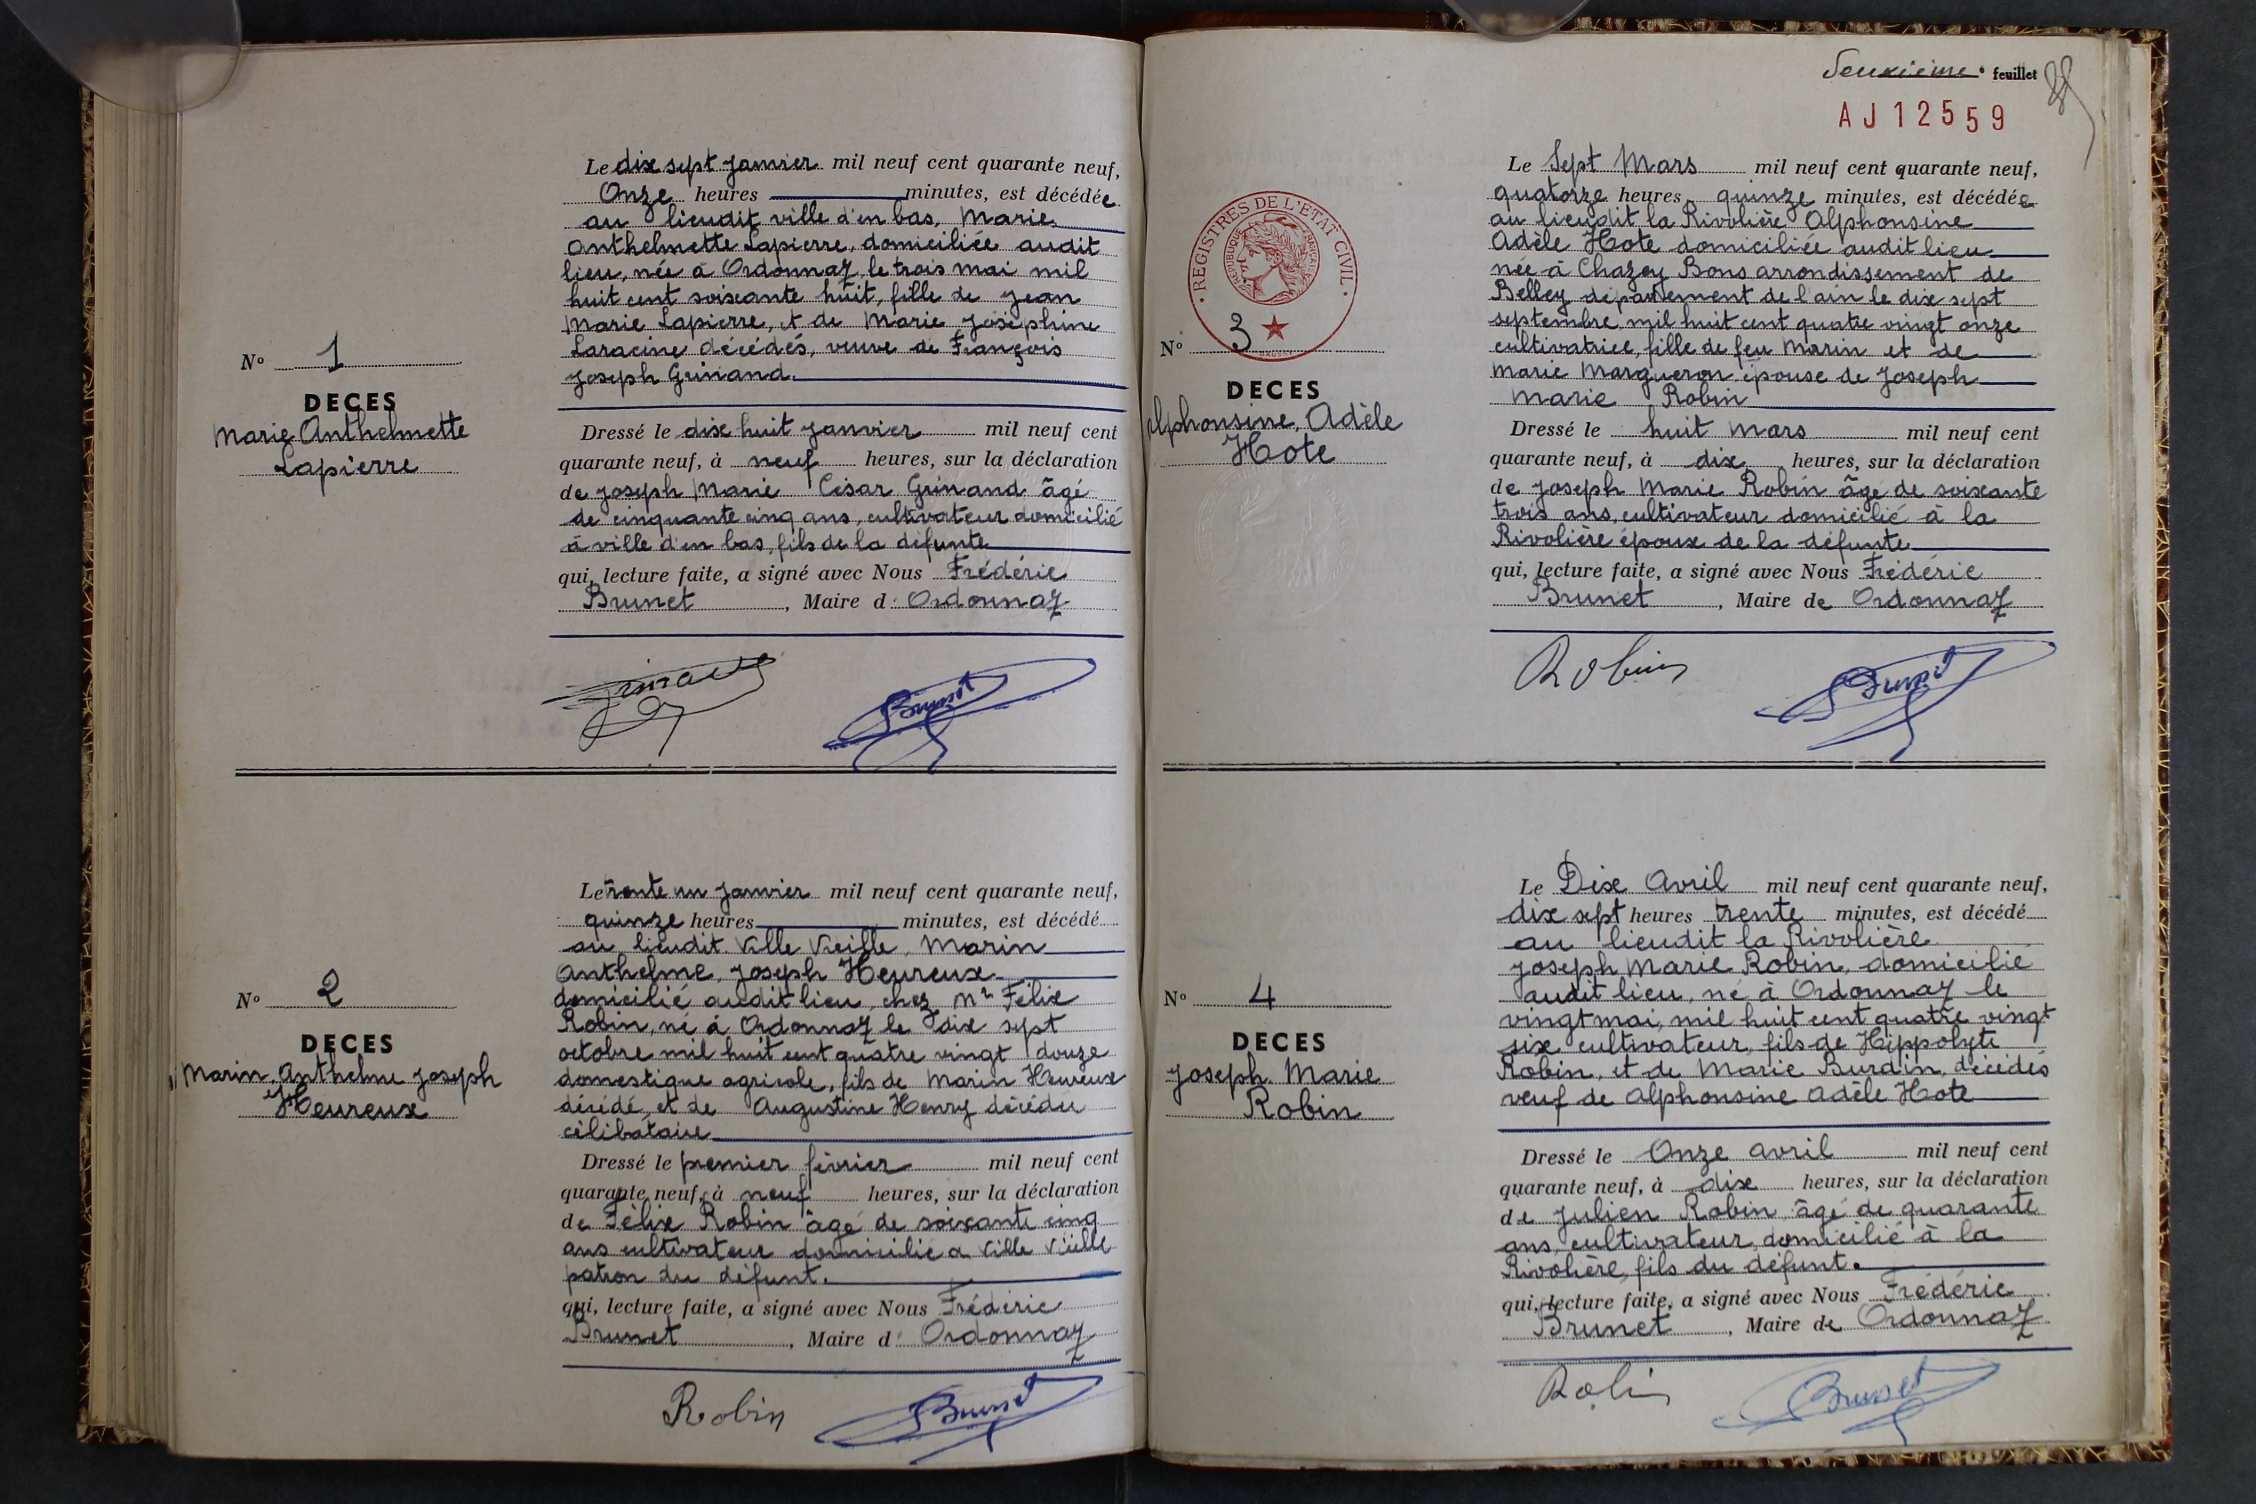 Le dix sept janvier mil neuf cent quarante neuf,
Onze heures minutes, est décédée
au lieudit ville d'en bas, Marie
Anthelmette Lapierre, domiciliée audit
lieu, née à Ordonnaz, le trois mai mil
huit cent soixante huit, fille de Jean
Marie Lapierre, et de Marie Joséphine
Laracine décédés, veuve de François
Joseph Grinand.
N° 1
DECES
Marie Anthelmette
Lapierre
Dressé le dix huit janvier mil neuf cent
quarante neuf, à neuf heures, sur la déclaration
de Joseph Marie César Grinand âgé
de cinquante cinq ans, cultivateur domicilié
à ville d'en bas, fils de la défunte
qui, lecture faite, a signé avec Nous Frédéric
Brunet, Maire d' Ordonnaz
Brunet
Le trente un janvier mil neuf cent quarante neuf,
quinze heures minutes, est décédé
au lieudit Ville Vieille, Marin
Anthelme, Joseph Heureux
domicilié audit lieu, chez Mr Félix
Robin, né à Ordonnaz le dix sept
octobre mil huit cent quatre vingt douze
domestique agricole, fils de Marin Heureux
décédé, et de Augustine Henry décédée
célibataire
N° 2
DECES
Marin, Anthelme Joseph
Heureux
Dressé le premier février mil neuf cent
quarante neuf, à neuf heures, sur la déclaration
de Félix Robin âgé de soixante cinq
ans cultivateur domicilié a Ville Vieille
patron du défunt.
qui, lecture faite, a signé avec Nous Frédéric
Brunet, Maire d' Ordonnaz
Robin Brunet
Deuxième feuillet
AJ12559
Le Sept Mars mil neuf cent quarante neuf,
quatorze heures quinze minutes, est décédée
au lieudit la Rivolière Alphonsine
Adèle Hote domiciliée audit lieu
née à Chazey Bons arrondissement de
Belley département de l'ain le dix sept
septembre mil huit cent quatre vingt onze
cultivatrice, fille de feu Marin et de
Marie Margueron épouse de Joseph
Marie Robin
REGISTRES DE L'ETAT CIVIL
REPUBLIQUE FRANÇAISE
N° 3
DECES
Alphonsine, Adèle
Hote
Dressé le huit mars mil neuf cent
quarante neuf, à dix heures, sur la déclaration
de Joseph Marie Robin âgé de soixante
trois ans, cultivateur domicilié à la
Rivolière époux de la défunte
qui, lecture faite, a signé avec Nous Frédéric
Brunet, Maire de Ordonnaz
Robin Brunet
Le Dix Avril mil neuf cent quarante neuf,
dix sept heures trente minutes, est décédé
au lieudit la Rivolière
Joseph Marie Robin, domicilié
audit lieu, né à Ordonnaz le
vingt mai, mil huit cent quatre vingt
six cultivateur, fils de Hippolyte
Robin, et de Marie Burdin, décédés
veuf de Alphonsine Adèle Hote
N° 4
DECES
Joseph Marie
Robin
Dressé le Onze avril mil neuf cent
quarante neuf, à dix heures, sur la déclaration
de Julien Robin, âgé de quarante
ans, cultivateur, domicilié à la
Rivolière, fils du défunt.
qui, lecture faite, a signé avec Nous Frédéric
Brunet, Maire de Ordonnaz
Robin Brunet